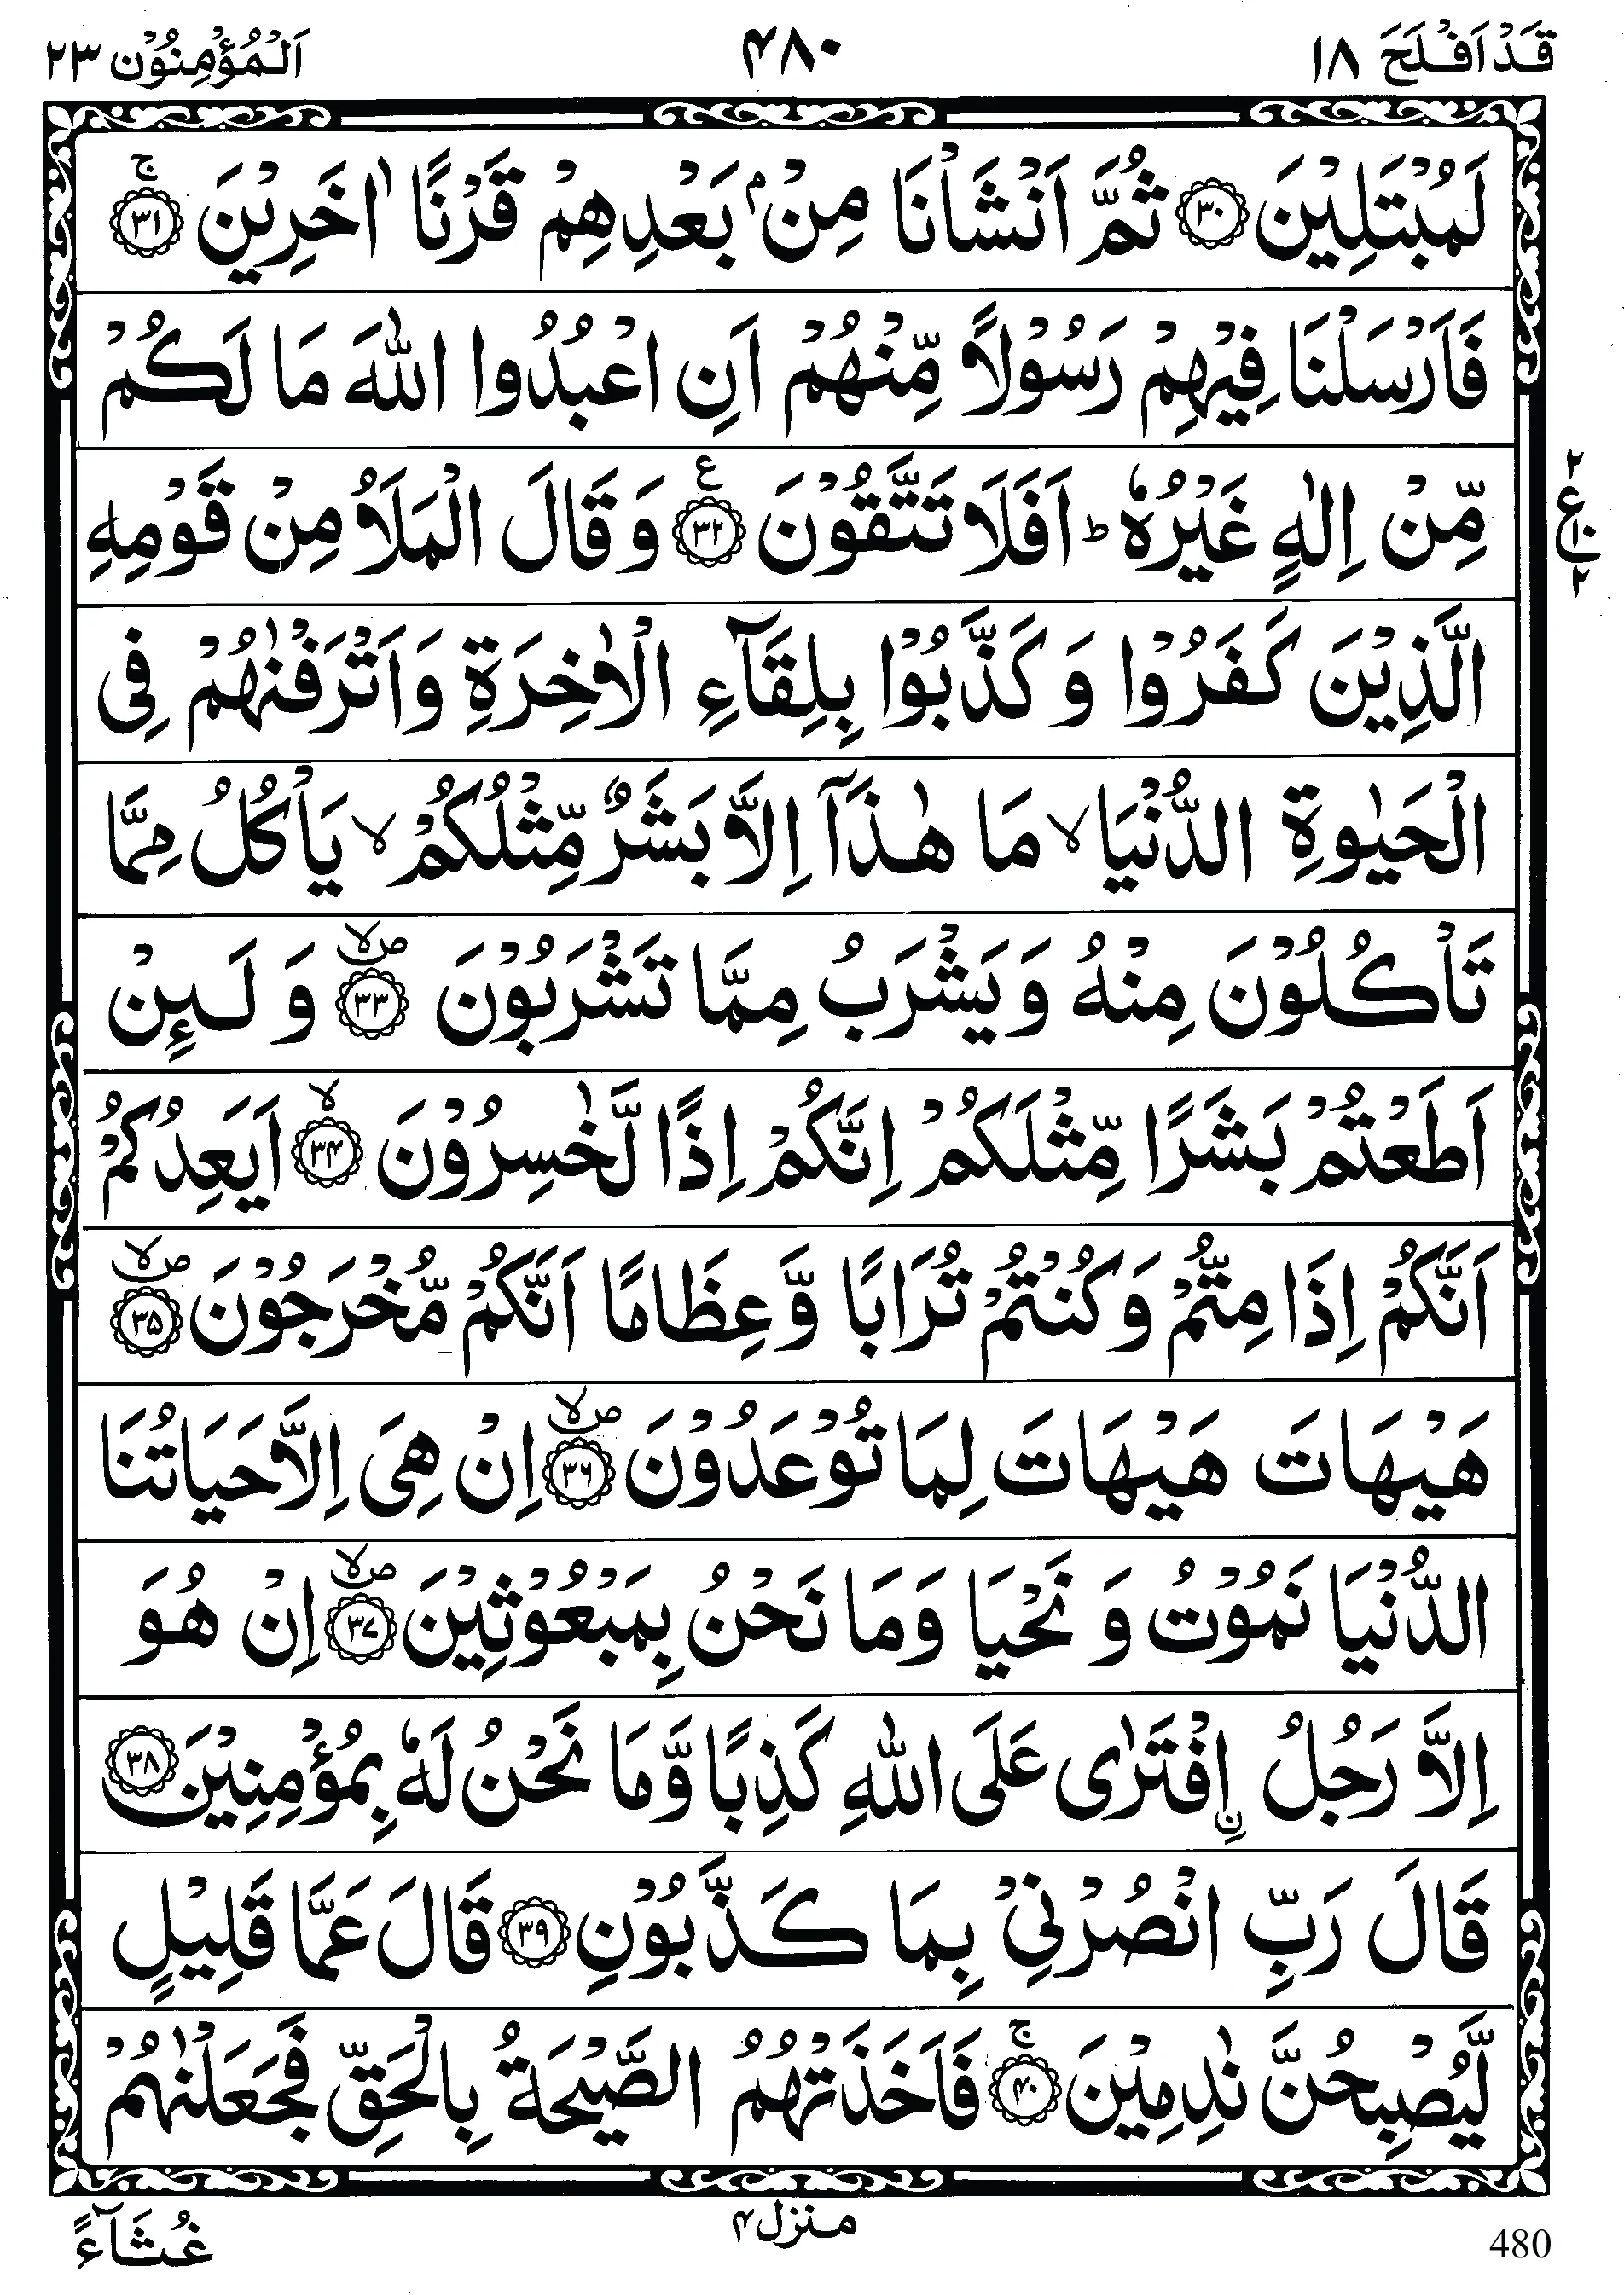 قَدْ اَفْلَحَ ١٨
۴۸۰
اَلْمُؤْمِنُوْن ٢٣
لَمُبْتَلِيْنَ ۝٣٠ ثُمَّ اَنْشَاْنَا مِنْۢ بَعْدِهِمْ قَرْنًا اٰخَرِيْنَ ۝٣١ۚ
فَاَرْسَلْنَا فِيْهِمْ رَسُوْلًا مِّنْهُمْ اَنِ اعْبُدُوا اللّٰهَ مَا لَكُمْ
مِّنْ اِلٰهٍ غَيْرُهٗ ؕ اَفَلَا تَتَّقُوْنَ ۝٣٢ ع وَ قَالَ الْمَلَاُ مِنْ قَوْمِهِ
٢ ع ٢
الَّذِيْنَ كَفَرُوْا وَ كَذَّبُوْا بِلِقَآءِ الْاٰخِرَةِ وَاَتْرَفْنٰهُمْ فِى
الْحَيٰوةِ الدُّنْيَا ۙ مَا هٰذَاۤ اِلَّا بَشَرٌ مِّثْلُكُمْ ۙ يَاْكُلُ مِمَّا
تَاْكُلُوْنَ مِنْهُ وَ يَشْرَبُ مِمَّا تَشْرَبُوْنَ ۝٣٣ صلا وَ لَىِٕنْ
اَطَعْتُمْ بَشَرًا مِّثْلَكُمْ اِنَّكُمْ اِذًا لَّخٰسِرُوْنَ ۝٣۴ۙ اَيَعِدُكُمْ
اَنَّكُمْ اِذَا مِتُّمْ وَكُنْتُمْ تُرَابًا وَّعِظَامًا اَنَّكُمْ مُّخْرَجُوْنَ ۝٣۵ صلا
هَيْهَاتَ هَيْهَاتَ لِمَا تُوْعَدُوْنَ ۝٣۶ صلا اِنْ هِىَ اِلَّا حَيَاتُنَا
الدُّنْيَا نَمُوْتُ وَ نَحْيَا وَمَا نَحْنُ بِمَبْعُوْثِيْنَ ۝٣٧ صلا اِنْ هُوَ
اِلَّا رَجُلُ اۨفْتَرٰى عَلَى اللّٰهِ كَذِبًا وَّمَا نَحْنُ لَهٗ بِمُؤْمِنِيْنَ ۝٣٨
قَالَ رَبِّ انْصُرْنِىْ بِمَا كَذَّبُوْنِ ۝٣٩ قَالَ عَمَّا قَلِيْلٍ
لَّيُصْبِحُنَّ نٰدِمِيْنَ ۝۴٠ۚ فَاَخَذَتْهُمُ الصَّيْحَةُ بِالْحَقِّ فَجَعَلْنٰهُمْ
غُثَآءً
منزل ۴
480